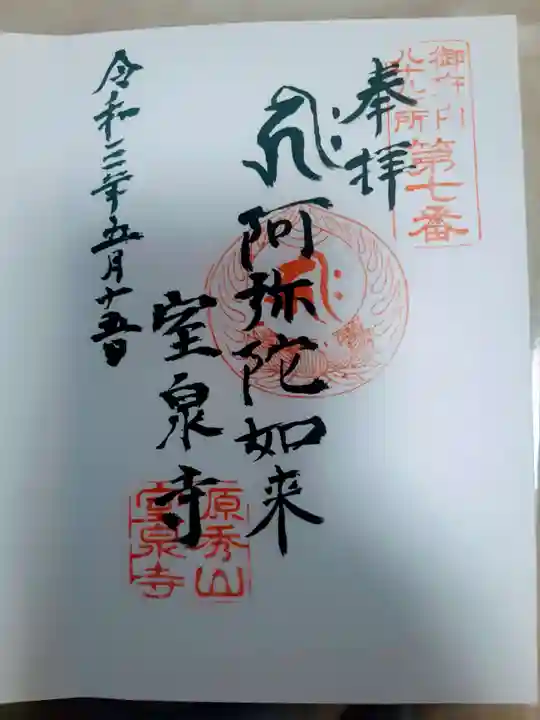 御府内
八十八ヶ所
第七番
奉拝
阿弥陀如来
室泉寺
令和三年五月十五日
源秀山
室泉寺